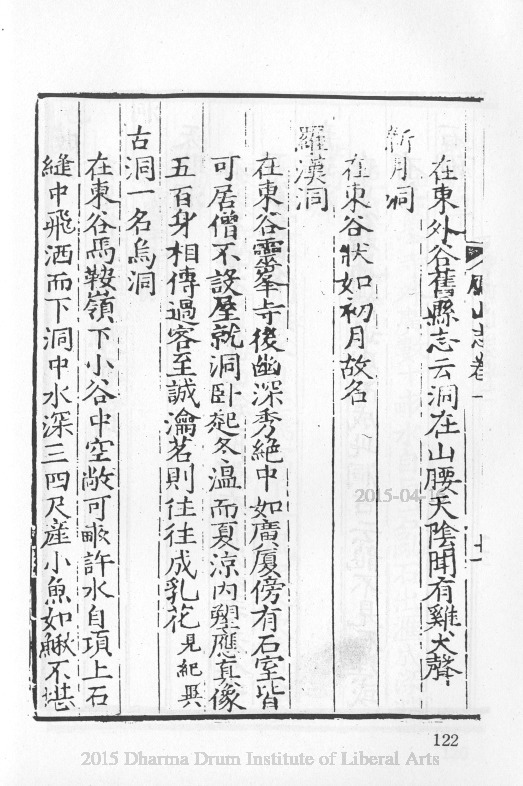 鴈山志卷一
十一
在東外谷舊縣志云洞在山腰天陰聞有雞犬聲
新月洞
在東谷狀如初月故名
羅漢洞
在東谷靈峯寺後幽深秀絶中如廣厦傍有石室皆
可居僧不設屋就洞卧起冬温而夏涼内塑應真像
五百身相傳過客至誠瀹茗則往往成乳花見紀異
古洞一名烏洞
在東谷馬鞍嶺下小谷中空敞可畝許水自項上石
縫中飛洒而下洞中水深三四尺産小魚如鰍不堪
122
2015 Dharma Drum Institute of Liberal Arts